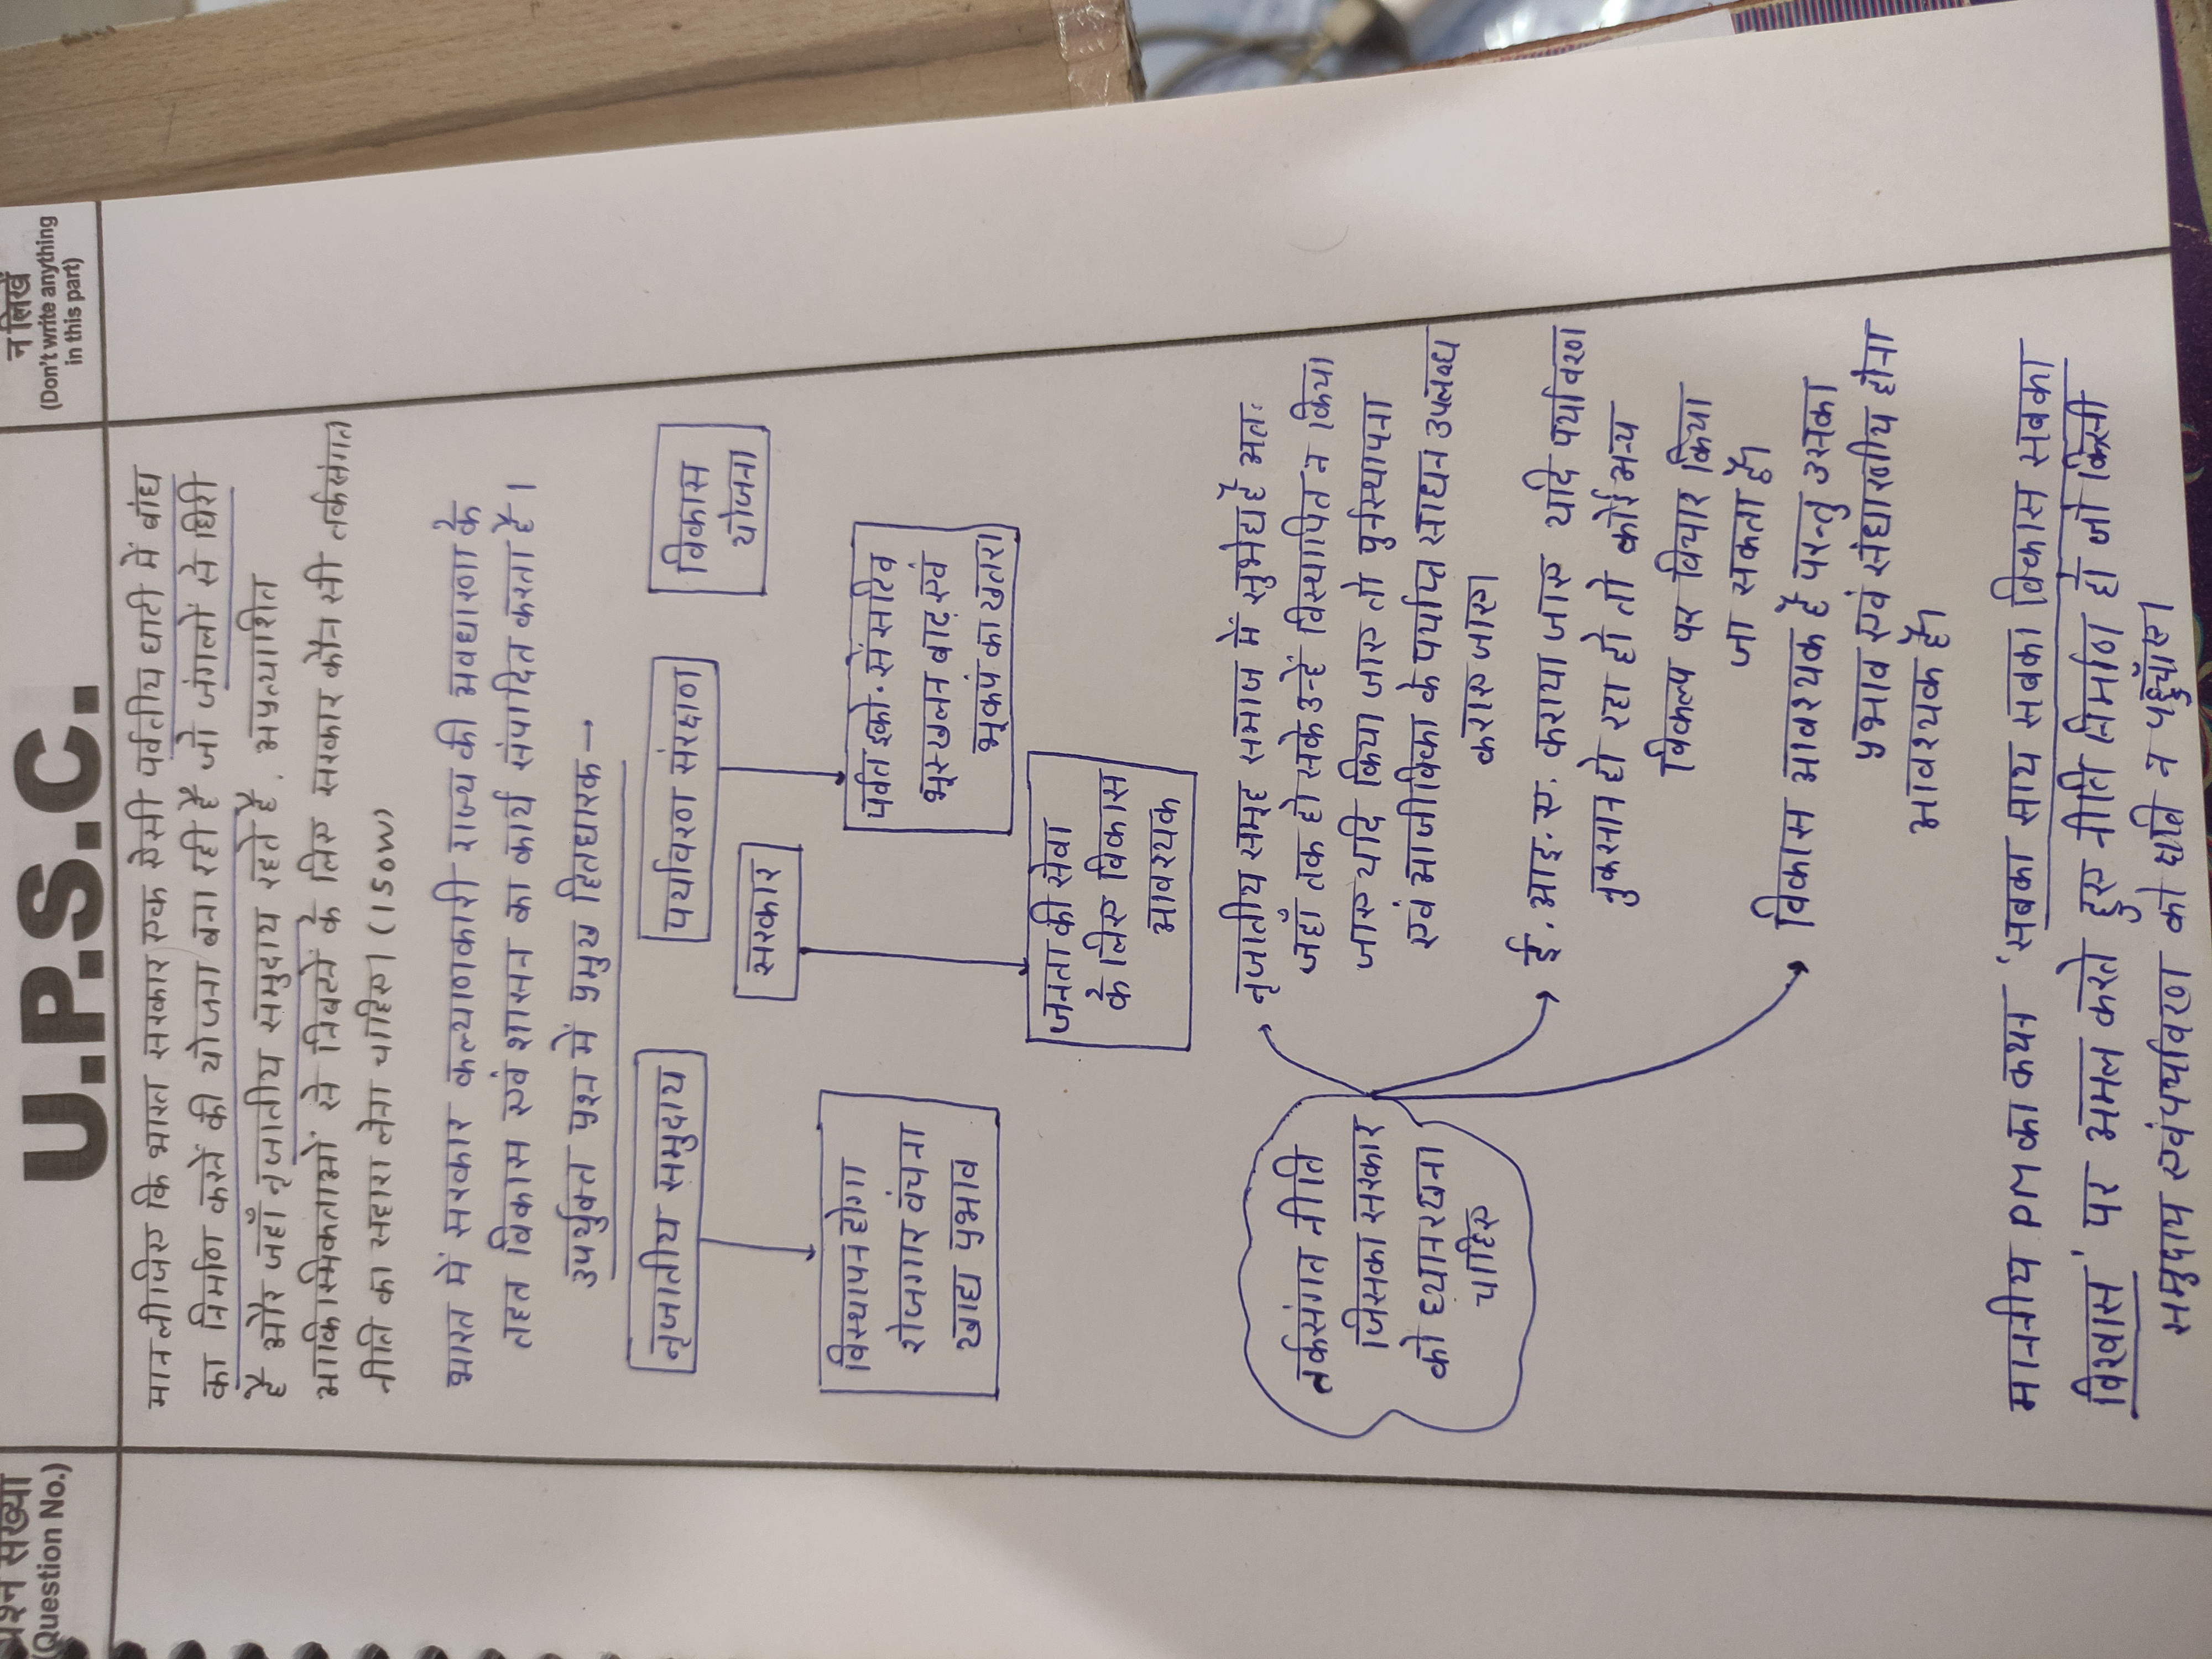 प्रश्न संख्या
(Question No.)
U.P.S.C.
न लिखें
(Don't write anything
in this part)
मान लीजिए कि भारत सरकार एक ऐसी पर्वतीय घाटी में बांध
का निर्माण करने की योजना बना रही है जो जंगलों से घिरी
है और जहाँ नृजातीय समुदाय रहते है. अप्रत्याशित
आकस्मिकताओं से निबटने के लिए सरकार कौन सी तर्कसंगत
नीति का सहारा लेना चाहिए। (150W)
भारत में सरकार कल्याणकारी राज्य की अवधारणा के
तहत विकास एवं शासन का कार्य संपादित करता है।
उपर्युक्त प्रश्न में प्रमुख हितधारक →
नृजातीय समुदाय
पर्यावरण संरक्षण
विकास
योजना
सरकार
विस्थापन होगा
रोजगार वंचना
खाद्य प्रभाव
पर्वत इको. सेंसटिव
भूस्खलन बाढ़ एवं
भूकंप का खतरा
जनता की सेवा
के लिए विकास
आवश्यक
तर्कसंगत नीति
जिसका सरकार
को ध्यान रखना
चाहिए
नृजातीय समूह समाज में सुभेद्य है अतः
जहाँ तक हो सके उन्हें विस्थापित न किया
जाए यदि किया जाए तो पुर्नस्थापना
एवं आजीविका के पर्याप्त साधन उपलब्ध
कराए जाए।
ई. आइ. ए. कराया जाए यदि पर्यावरण
नुकसान हो रहा हो तो कोई अन्य
विकल्प पर विचार किया
जा सकता है।
विकास आवश्यक है परन्तु उसका
प्रभाव एवं संधारणीय होना
आवश्यक है।
माननीय PM का कथन 'सबका साथ सबका विकास सबका
विश्वास' पर अमल करते हुए नीति निर्माण हो जो किसी
समुदाय एवं पर्यावरण को क्षति न पहुँचाए।